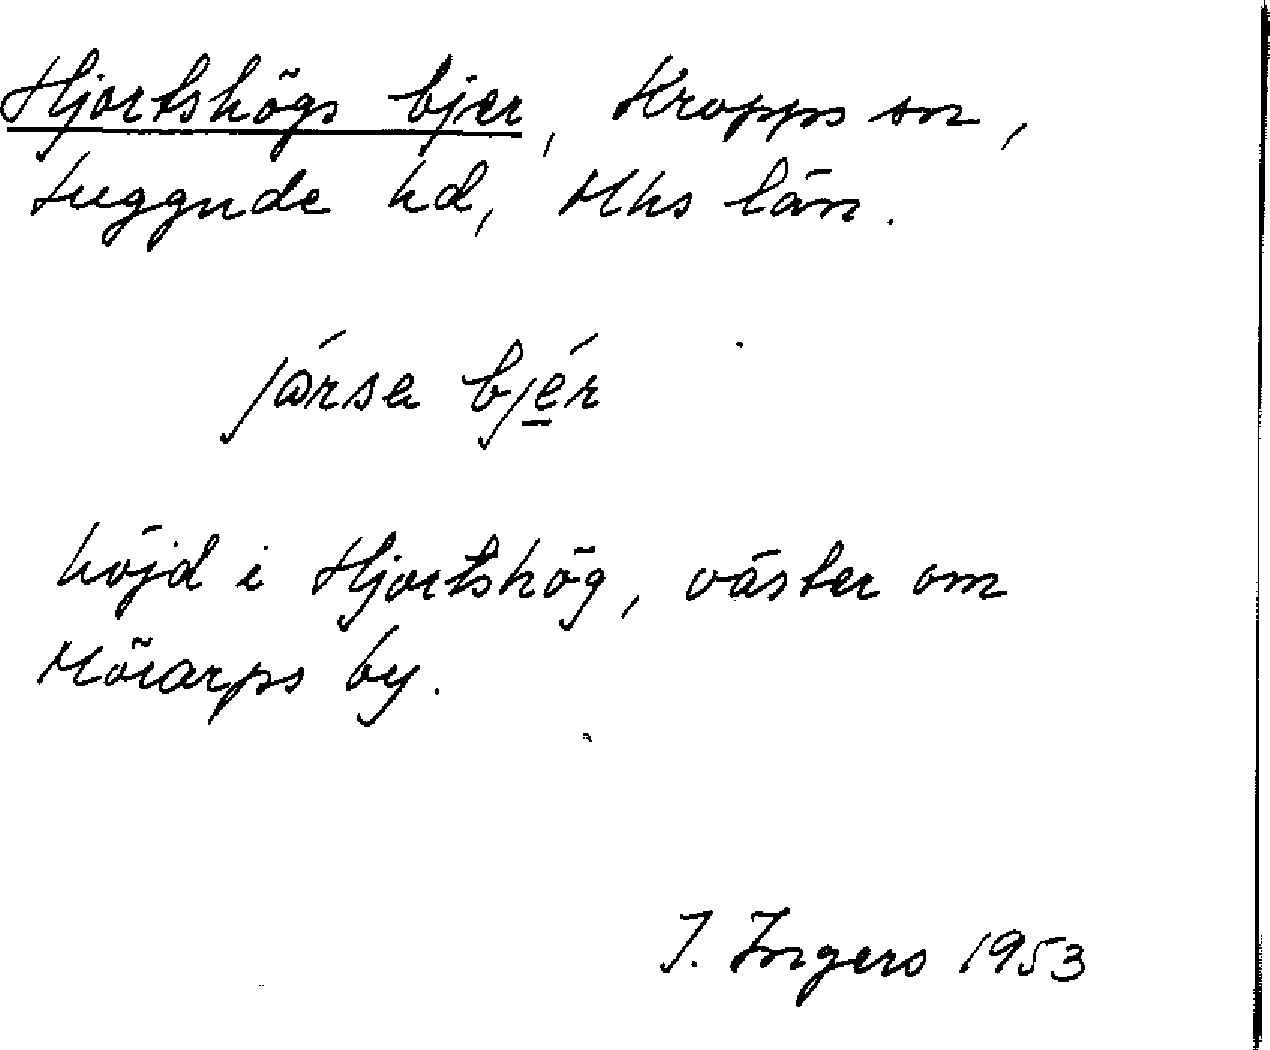 Hjortshögs bjer, Kropps sn,
Luggude hd, Mhs län.
jársa bjér
höjd i Hjortshög, väster om
Mörarps by.
I. Ingers 1953